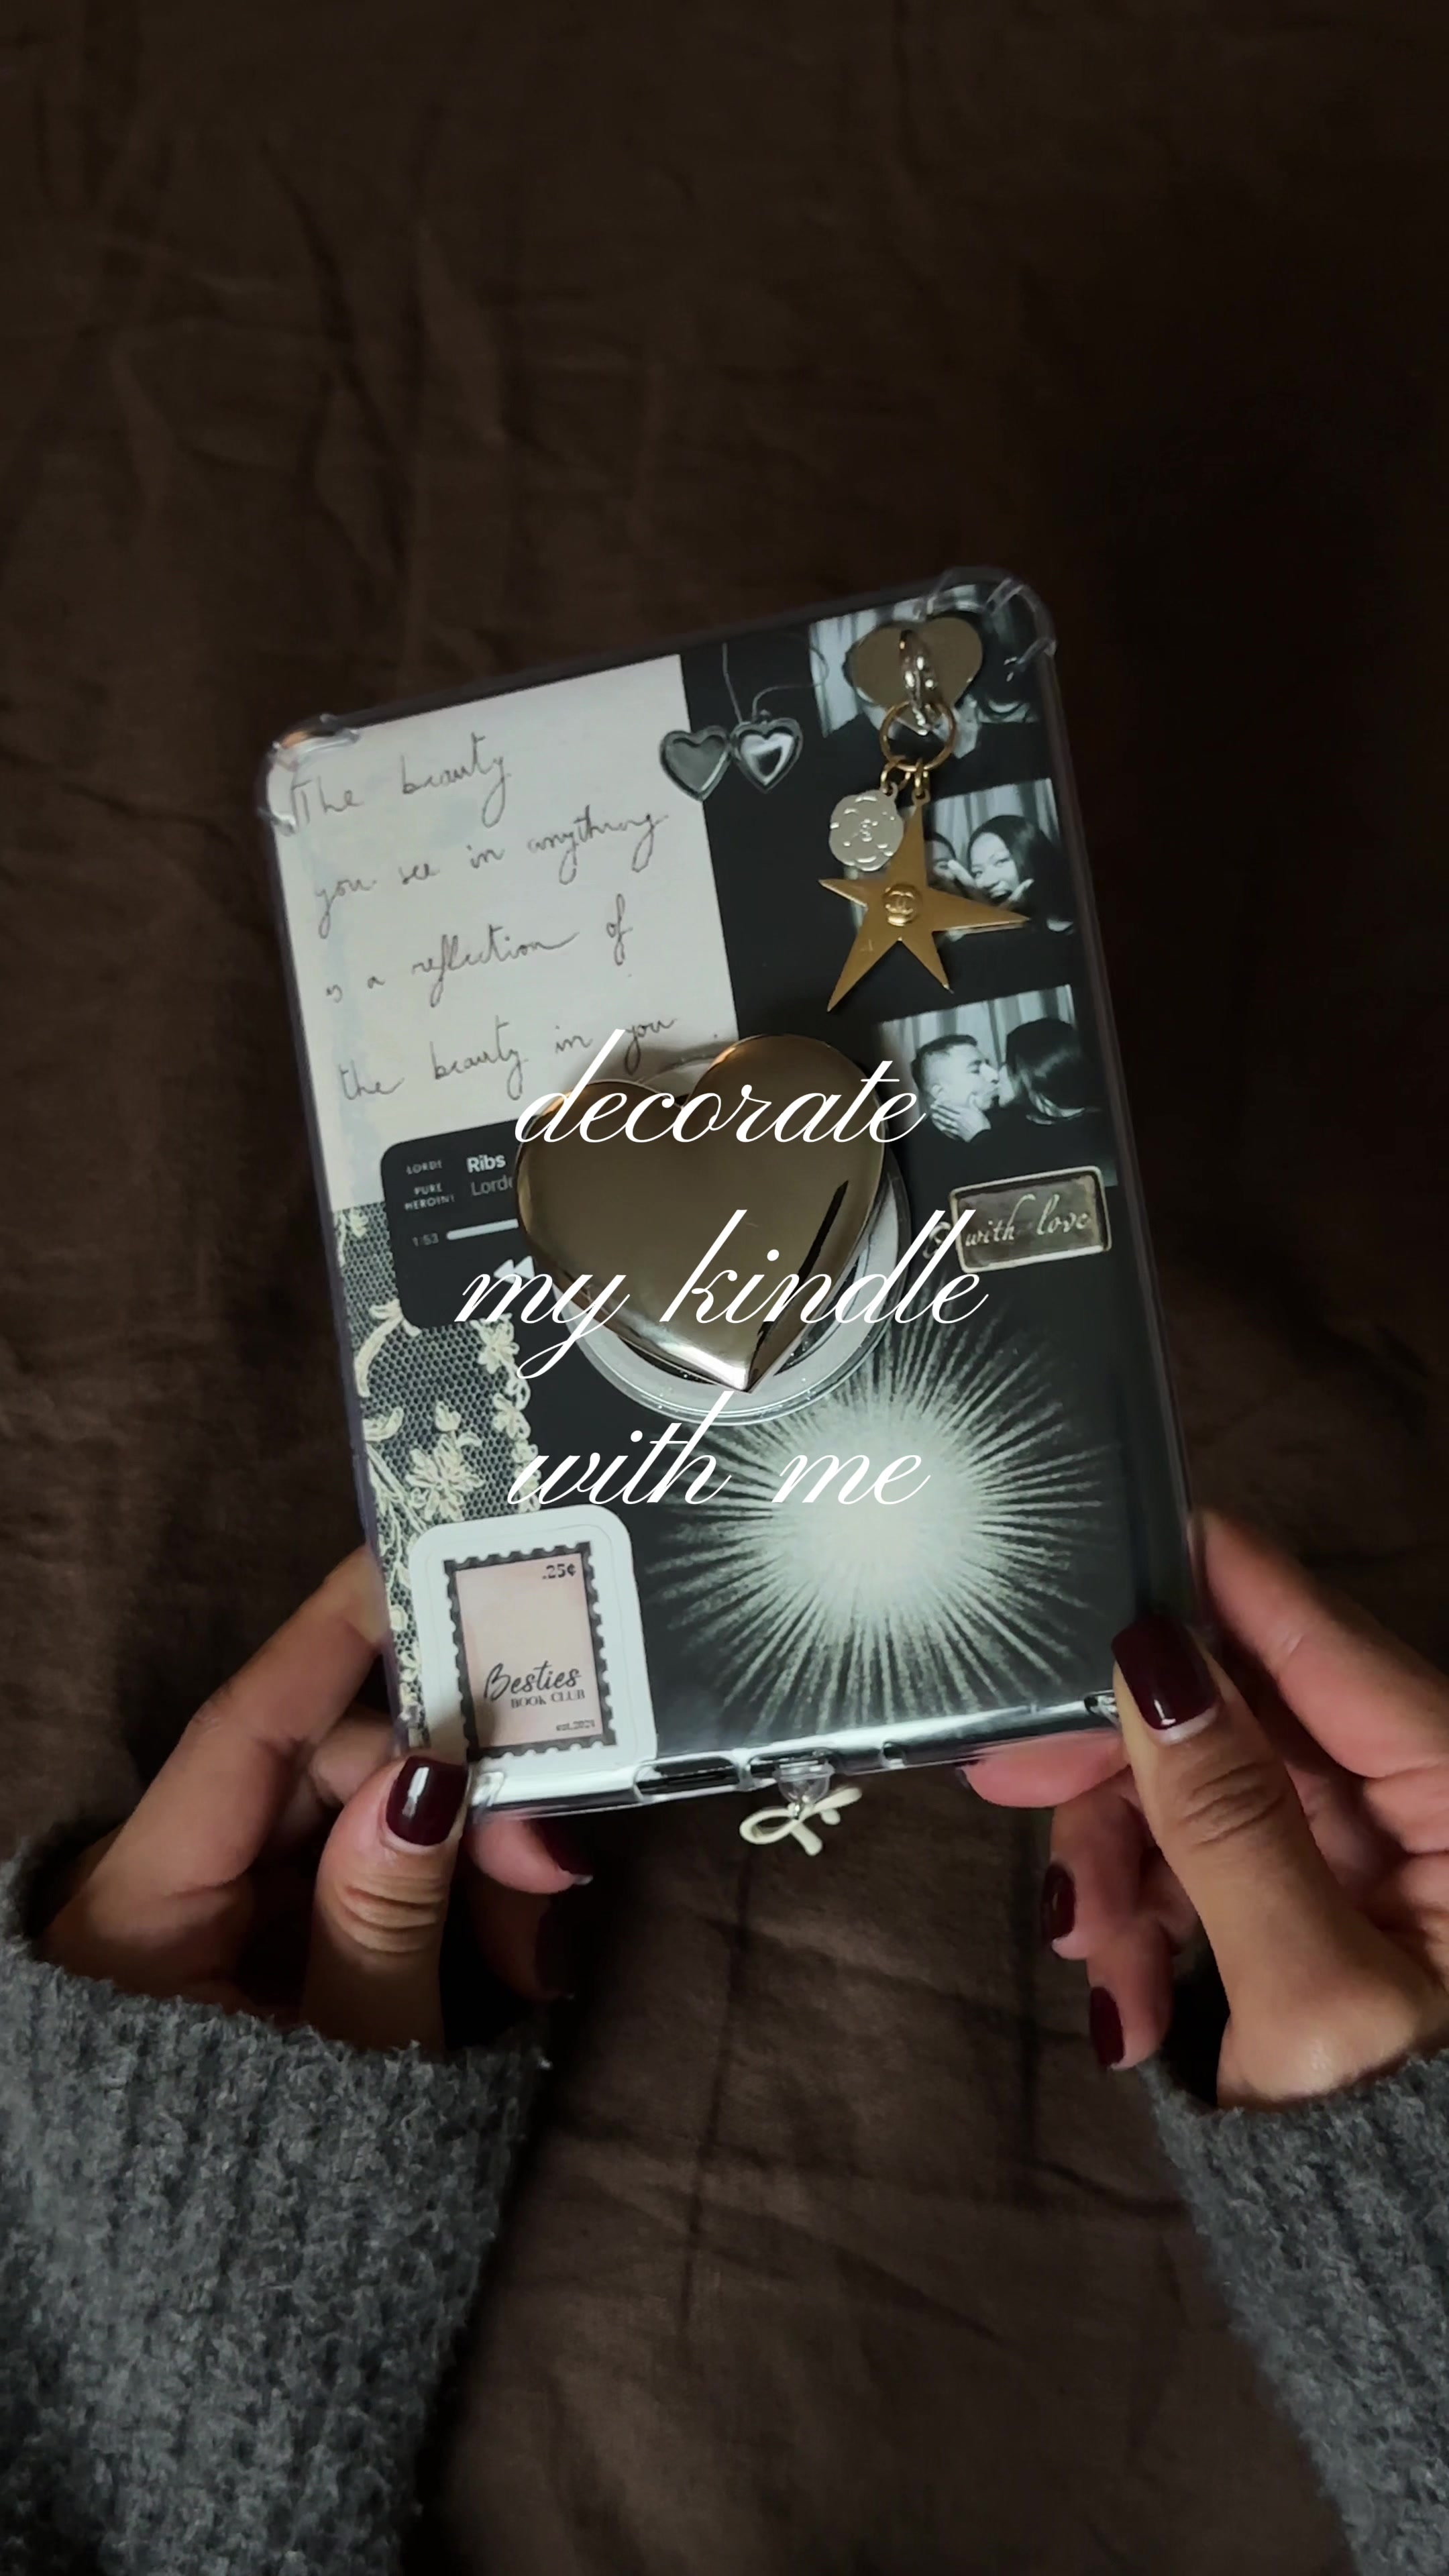 The beauty
you see in anything
is a reflection of
the beauty in you
decorate
my kindle
with me
LORDE
PURE
HEROINE
Ribs
Lorde
1:53
with love
.25¢
Besties
BOOK CLUB
est.2024